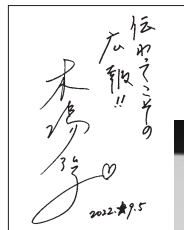 伝わってこその
広報!!
木場弘子
2022.9.5